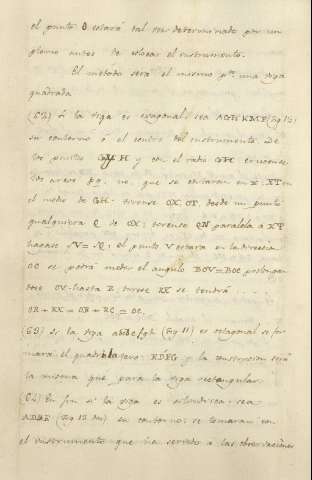 el punto O estará tal ser determinado por un
plomo antes de colocar el instrumento.
El método será el mismo p.ª una viga
quadrada
(62) Si la viga es exagonal: sea AGHKMF (fig 12)
su contorno ó el centro del instrumento. De
los puntos G y H y con el radio GH crucense
los arcos pq. no, que se cortaran en X. XT en
el medio de GH: tirense OX. OT, desde un punto
qualquiera Q de OX; tirense QN paralela a XT
hagase el punto V estara en la direccion
OC se podrá medir el angulo BOV=BOC prolongan-
dose OV hasta R tirese RX se tendrá
OR + RX = OR + RC = OC.
(63) Si la viga abcdefgh (fig 11) es octagonal se for-
mara el quadrilatero KDFG y la construccion será
la misma que para la viga rectangular.
(64) En fin si la viga es cilindrica: sea
ADBE (fig 13) su contorno: se tomaran con
el instrumento que ha servido a las observaciones